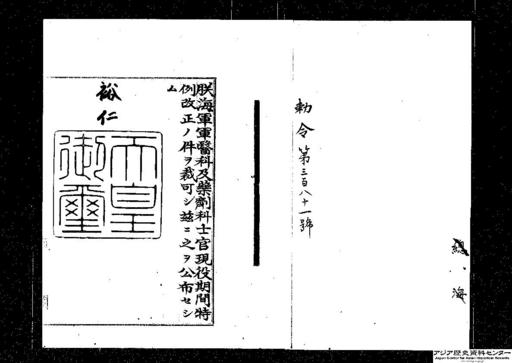 勅令第三百八十一號
朕海軍軍醫科及藥劑科士官現役期間特
例改正ノ件ヲ裁可シ茲ニ之ヲ公布セシ
ム
裕仁
天皇
御璽
海
アジア歴史資料センター
Japan Center for Asian Historical Records